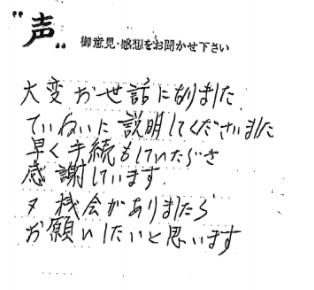 "声"
御意見・感想をお聞かせ下さい
大変お世話になりました
ていねいに説明してくださいました
早く手続もしていただき
感謝しています
又機会がありましたら
お願いしたいと思います